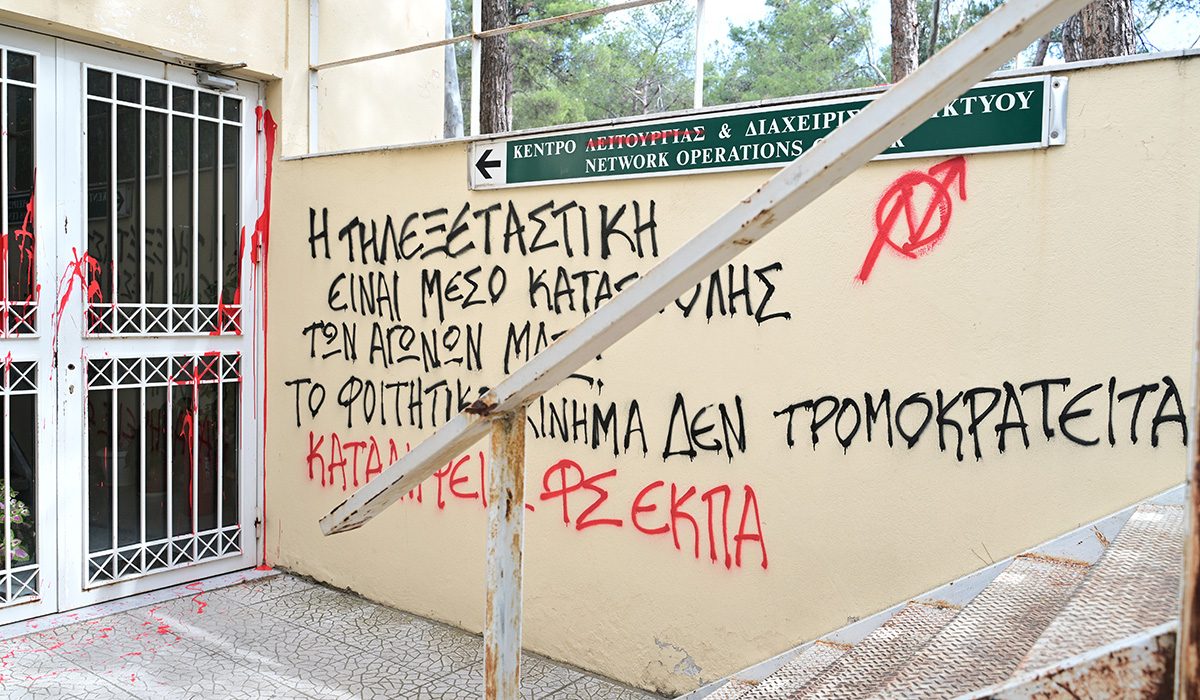 ΚΕΝΤΡΟ ΛΕΙΤΟΥΡΓΙΑΣ & ΔΙΑΧΕΙΡΙΣ ΙΚΤΥΟΥ
NETWORK OPERATIONS C
Η ΤΗΛΕΞΕΤΑΣΤΙΚΗ
ΕΙΝΑΙ ΜΕΣΟ ΚΑΤΑΣ ΟΛΗΣ
ΤΩΝ ΑΓΩΝΩΝ ΜΑΣ
ΤΟ ΦΟΙΤΗΤΙΚΟ ΚΙΝΗΜΑ ΔΕΝ ΤΡΟΜΟΚΡΑΤΕΙΤΑ
ΦΣ ΕΚΠΑ